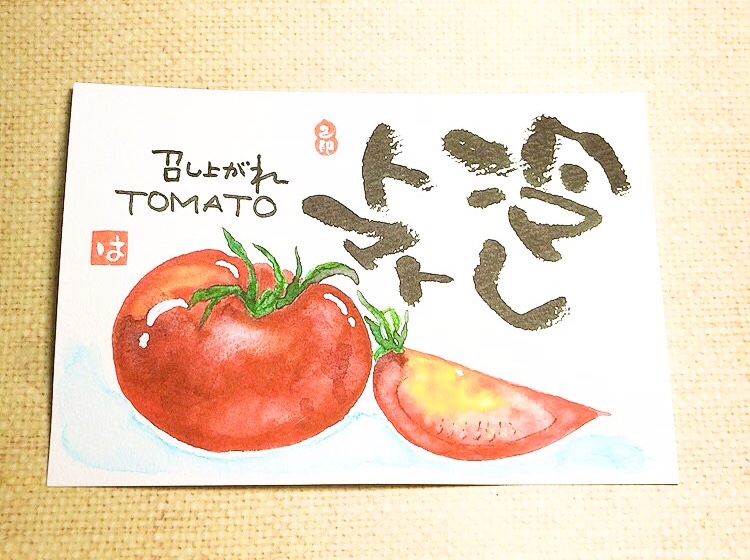 冷し
トマト
召し上がれ
TOMATO
は